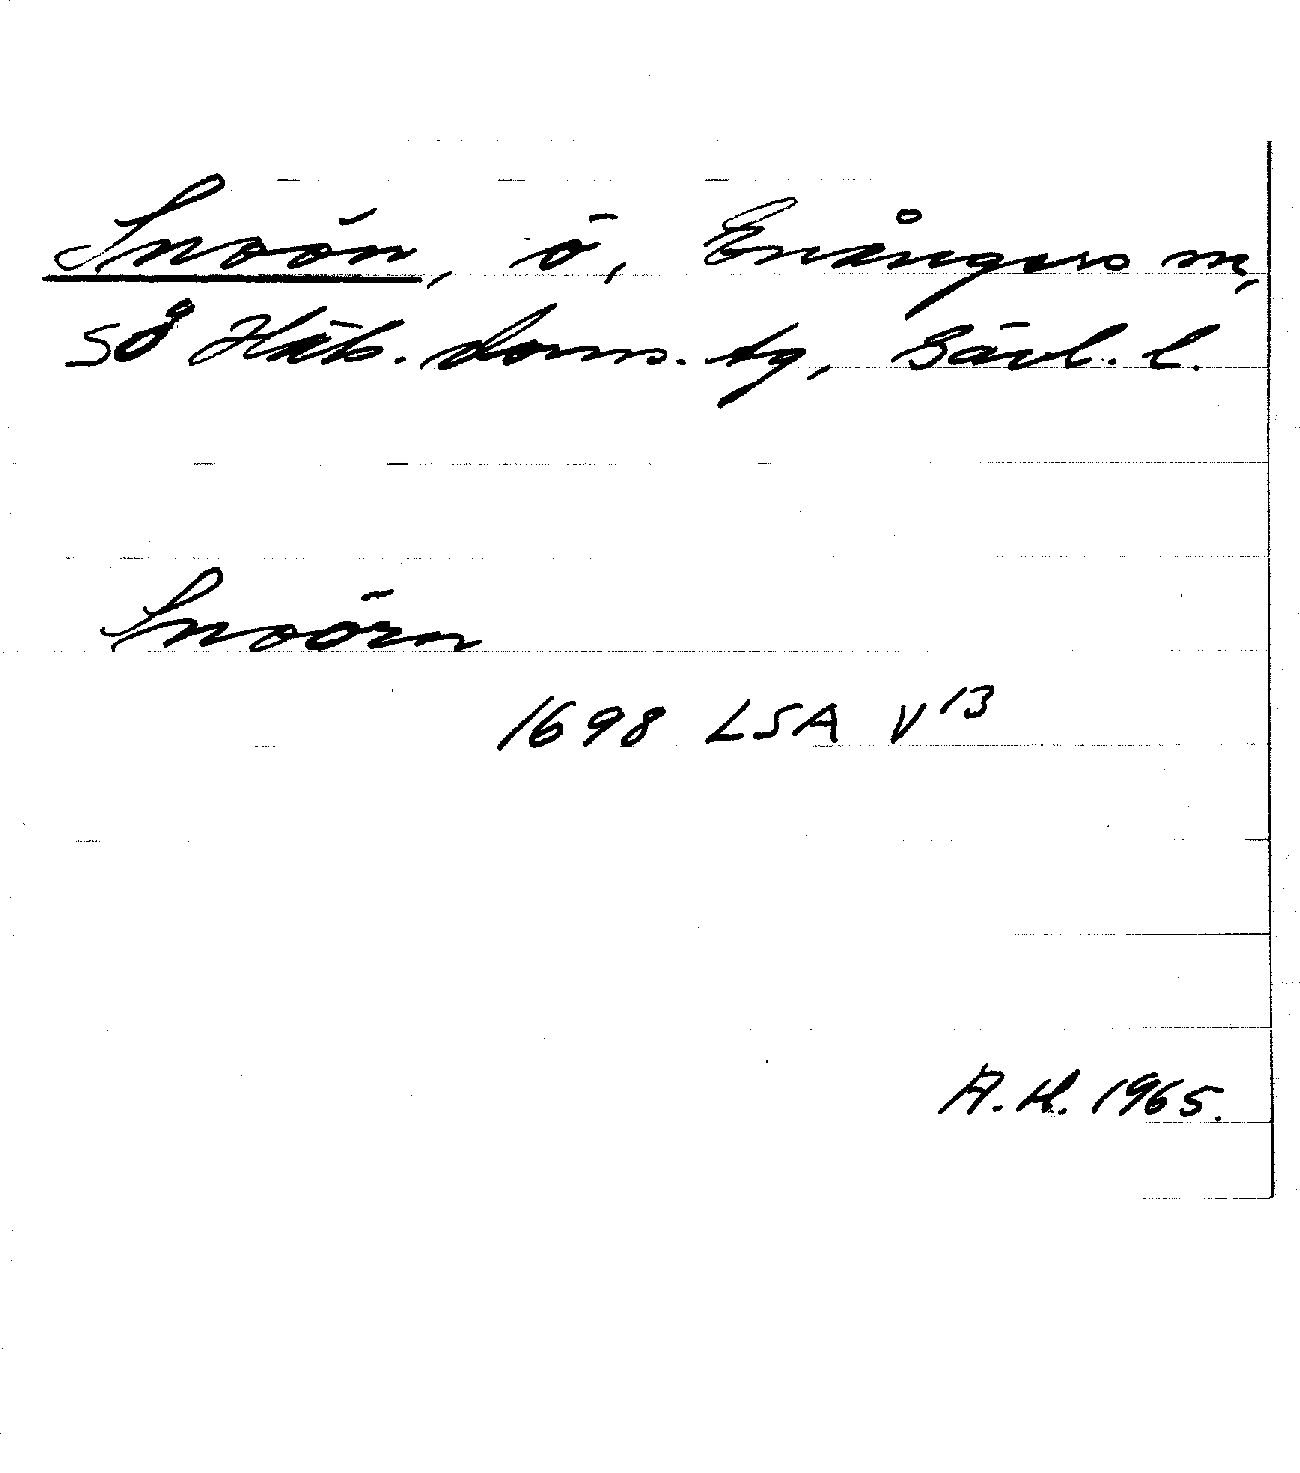 Snoön, ö, Enångers sn,
SÖ Häls. doms. tg, Gävl. l.
Snoörn
1698 LSA V 13
A.H. 1965.